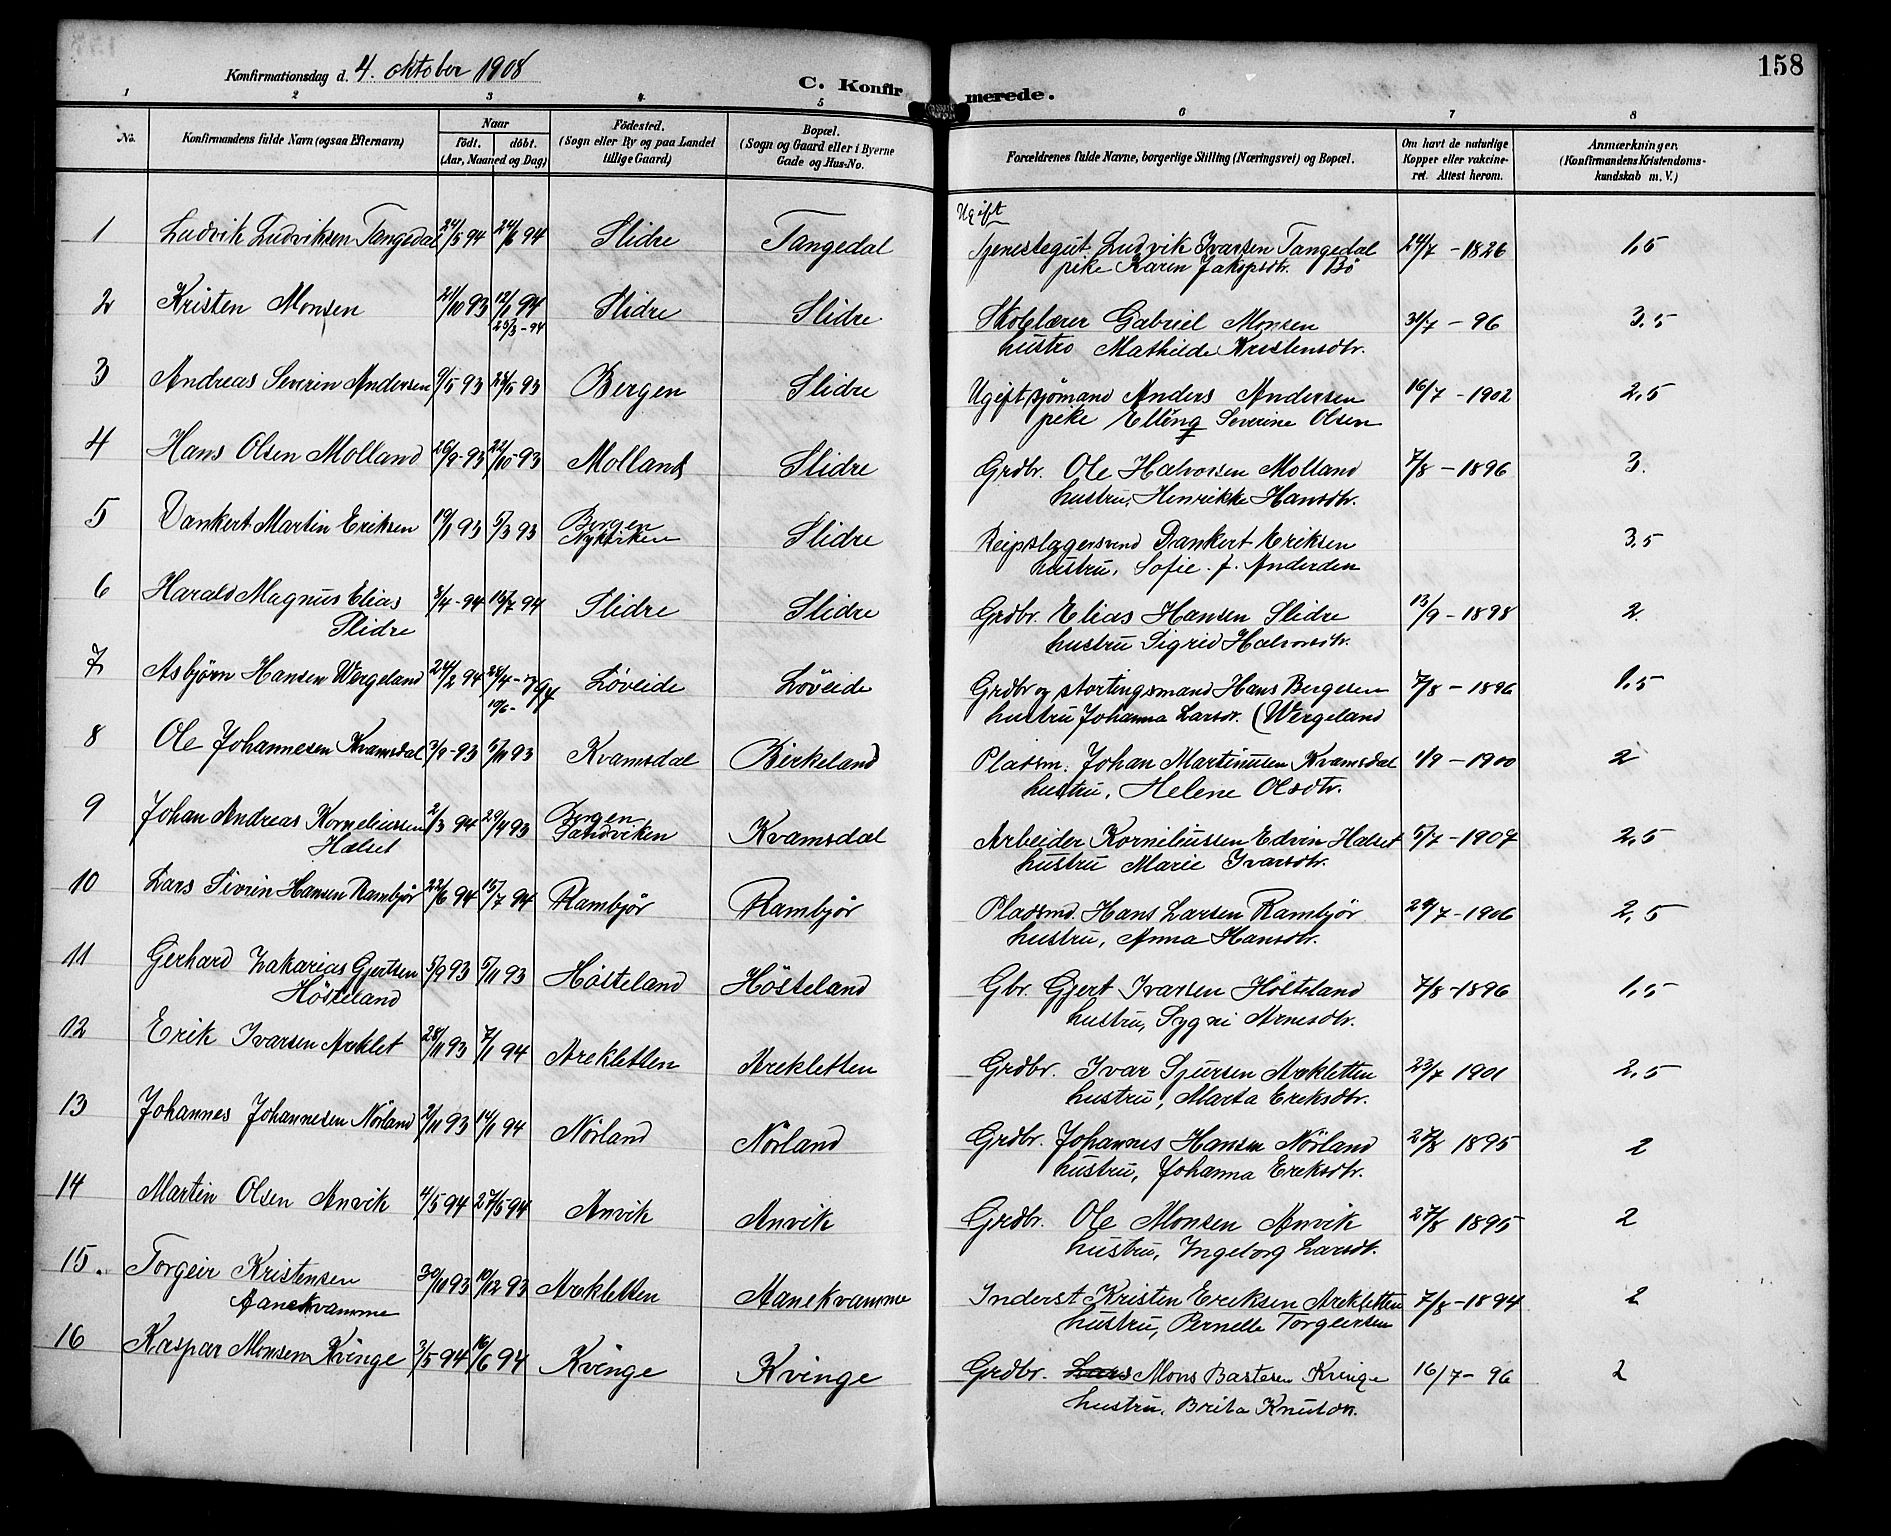 158
Konfirmationsdag d. 4. oktober 1908
C. Konfirmerede.
1 2 3 4. 5 6 7 8
No. Konfirmandens fulde Navn (ogsaa Efternavn) Naar födt. döbt. (Aar, Maaned og Dag) Födested. (Sogn eller By og paa Landet tillige Gaard) Bopæl. (Sogn og Gaard eller i Byerne Gade og Hus-No. Forældrenes fulde Navne, borgerlige Stilling (Næringsvei) og Bopæl. Om havt de naturlige Kopper eller vakcineret. Attest herom. Anmærkninger. (Konfirmandens Kristendomskundskab m. V.)
1 Ludvik Ludviksen Tangedal 24/6 94 Slidre Tangedal Ugift Tjenestegut Ludvik Ivarsen Tangedal 24/7 - 1826 1,5
pike Karen Jakopsdtr. Bö
2 Kristen Monsen 21/10 93 12/1 94 Slidre Slidre Skolelærer Gabriel Monsen 31/7 - 96 3,5
25/3 - 94 hustro Mathilde Kristensdtr.
3 Andreas Severin Andersen 9/5 93 28/5 93 Bergen Slidre Ugift, sjömand Anders Andersen 16/7 - 1902 2,5
pike Severine Olsen
4 Hans Olsen Molland 26/9 - 93 22/10 - 93 Molland Slidre Grdbr. Ole Halvorsen Molland 7/8 - 1896 3.
hustru, Henrikke Hansdtr.
5 Dankert Martin Eriksen 19/1 93 5/3 93 Bergen Nykirken Slidre Reipslagersvend Dankert Eriksen 3,5
hustru, Sofie f. Anderden
6 Harald Magnus Elias 3/4 - 94 15/7 94 Slidre Slidre Grdbr. Elias Hansen Slidre 13/9 - 1898 2
Slidre hustru Sigrid Halvorsdtr.
7 Asbjørn Hansen Wergeland 24/2 94 Løveide Löveide Grdbr og stortingsmand Hans Bergesen 7/8 - 1896 1,5
hustru Johanna Larsdr. (Wergeland
8 Ole Johannesen Kvamsdal 3/9 - 93 5/11 93 Kvamsdal Birkeland Pladsm. Johan Martinusen Kvamsdal 1/9 - 1900 2
hustru, Helene Olsdtr.
9 Johan Andreas Korneliussen 2/3 94 29/4 93 Bergen Sandviken Kvamsdal Arbeider Kornibiussen Edvin Halset 5/7 - 1907 2,5
Halset hustru Marie Ivarsdtr.
10 Lars Sivrin Hansen Rambjør 22/6 94 15/7 94 Rambjør Rambjør Pladsmd. Hans Larsen Rambjør 29/7 - 1906 2,5
hustru, Anna Hansdtr.
11 Gerhard Zakarias Gjertsen 5/9 93 5/11 93 Hösteland Hösteland Gbr. Gjert Ivarsen Hösteland 7/8 - 1896 1,5
Hösteland hustru, Sygni Arnesdtr.
12 Erik Ivarsen Areklet 28/11 93 7/1 94 Arekletten Arekletten Grdbr. Ivar Sjursen Arekletten 23/7 1901 2,5
hustru, Marta Eriksdtr.
13 Johannes Johannesen Nörland 2/11 93 14/1 94 Nörland Nörland Grdbr. Johannes Hansen Nörland 27/8 1895 2
hustru, Johanna Eriksdtr.
14 Martin Olsen Anvik 4/5 94 27/5 94 Anvik Anvik Grdbr. Ole Monsen Anvik 27/8 1895 2
hustru, Ingeborg Larsdt.
15. Torgeir Kristensen 30/10 93 10/12 93 Arekletten Aanekvamme Inderst Kristen Eriksen Arekletten 7/8 - 1894 2
Aanekvamme hustru, Pernelle Torgeirsen
16 Kaspar Monsen Kvinge 3/5 94 10/6 94 Kvinge Kvinge Grdbr. Lars Mons Bastesen Kvinge 16/7 - 96 2
hustru, Brita Knutdtr.